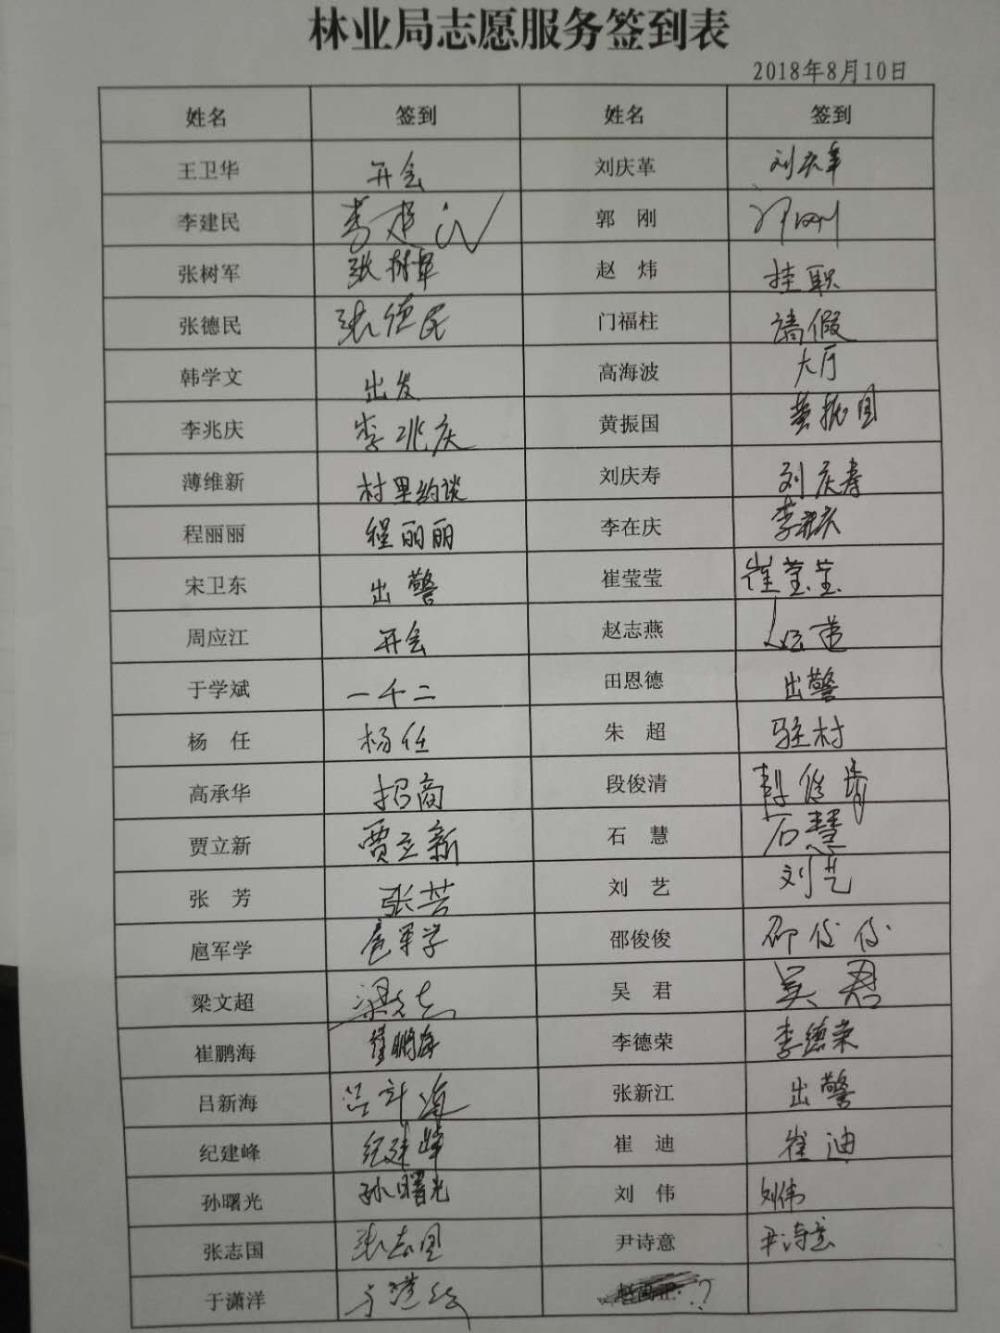 林业局志愿服务签到表
2018年8月10日
姓名 签到 姓名 签到
王卫华 开会 刘庆革 刘庆革
李建民 李建民 郭 刚 郭刚
张树军 张树军 赵 炜 挂职
张德民 张德民 门福柱 请假
韩学文 出发 高海波 大厅
李兆庆 李兆庆 黄振国 黄振国
薄维新 村里约谈 刘庆寿 刘庆寿
程丽丽 程丽丽 李在庆 李在庆
宋卫东 出警 崔莹莹 崔莹莹
周应江 开会 赵志燕
于学斌 田恩德 出警
杨 任 杨任 朱 超 驻村
高承华 招商 段俊清 段俊清
贾立新 贾立新 石 慧 石慧
张 芳 张芳 刘 艺 刘艺
扈军学 扈军学 邵俊俊 邵俊俊
梁文超 梁文超 吴 君 吴君
崔鹏海 崔鹏海 李德荣 李德荣
吕新海 吕新海 张新江 出警
纪建峰 纪建峰 崔 迪 崔迪
孙曙光 孙曙光 刘 伟 刘伟
张志国 张志国 尹诗意 尹诗意
于潇洋 ?